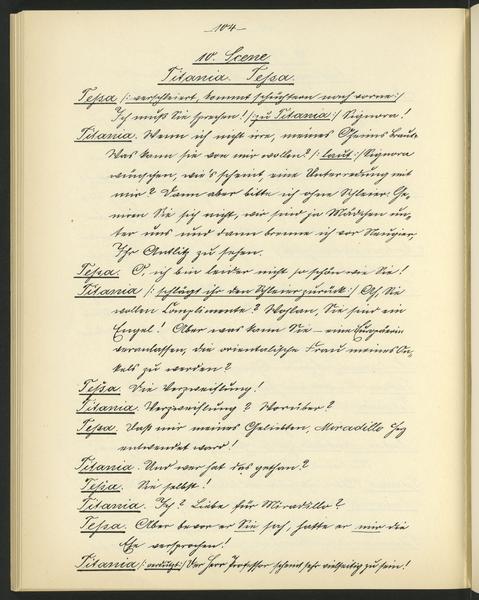 —104—
10. Scene
Titania. Teßa.
Teßa /: verschleiert, kommt schüchtern nach vorne :/
Ich muß Sie sprechen! /: zu Titania :/ Signora!
Titania. Wenn ich nicht irre, meines Oheims Braut.
Was kann sie von mir wollen? /: laut :/ Signora
wünschen, wie's scheint, eine Unterredung mit
mir? Dann aber bitte ich ohne Schleier. Ge-
nieren Sie sich nicht, wir sind ja Mädchen un-
ter uns und dann brenne ich vor Neugier,
Ihr Antlitz zu sehen.
Teßa. O, ich bin leider nicht so schön wie Sie!
Titania /: schlägt ihr den Schleier zurück :/ Ah, Sie
wollen Complimente? Wohlan, Sie sind ein
Engel! Aber was kann Sie – eine Europäerin
veranlassen, die orientalische Frau meines On-
kels zu werden?
Teßa. Die Verzweiflung!
Titania. Verzweiflung? Worüber?
Teßa. Daß mir meines Geliebten, Miradillo Herz
entwendet ward!
Titania. Und wer hat das gethan?
Teßa. Sie selbst!
Titania. Ich? Liebe für Miradillo?
Teßa. Aber bevor er Sie sah, hatte er mir die
Ehe versprochen!
Titania /: verdutzt :/ Der Herr Professor scheint sehr vielseitig zu sein!